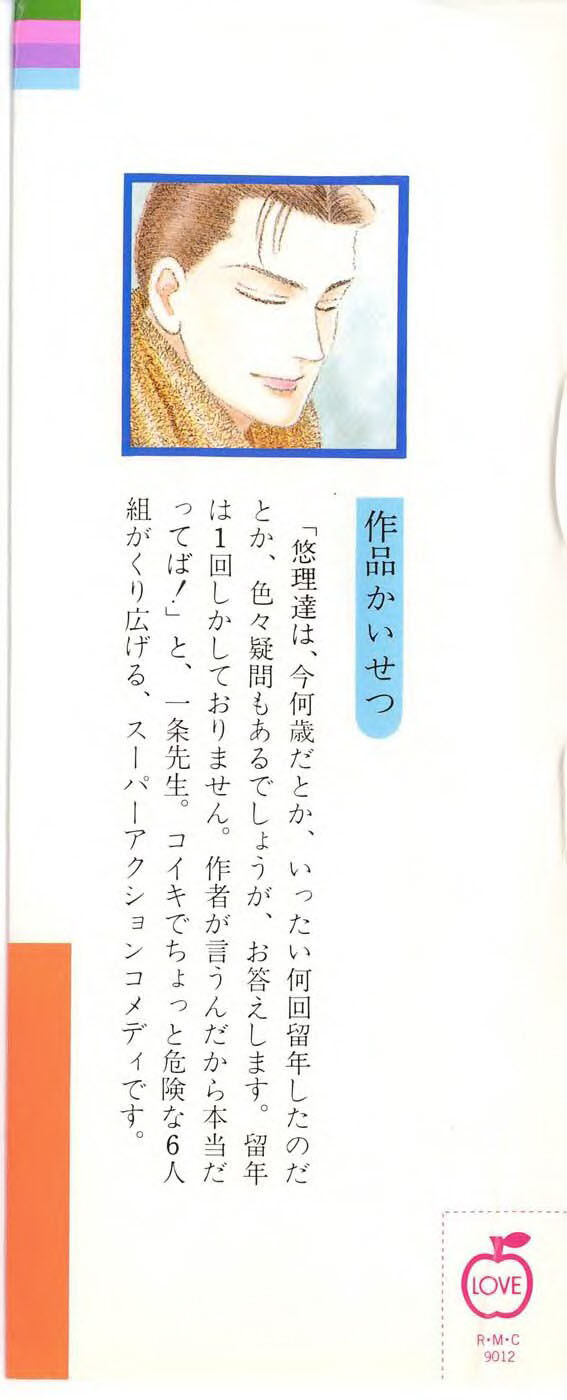 作品かいせつ
「悠理達は、今何歳だとか、いったい何回留年したのだ
とか、色々疑問もあるでしょうが、お答えします。留年
は1回しかしておりません。作者が言うんだから本当だ
ってば！」と、一条先生。コイキでちょっと危険な6人
組がくり広げる、スーパーアクションコメディです。
LOVE
R・M・C
9012